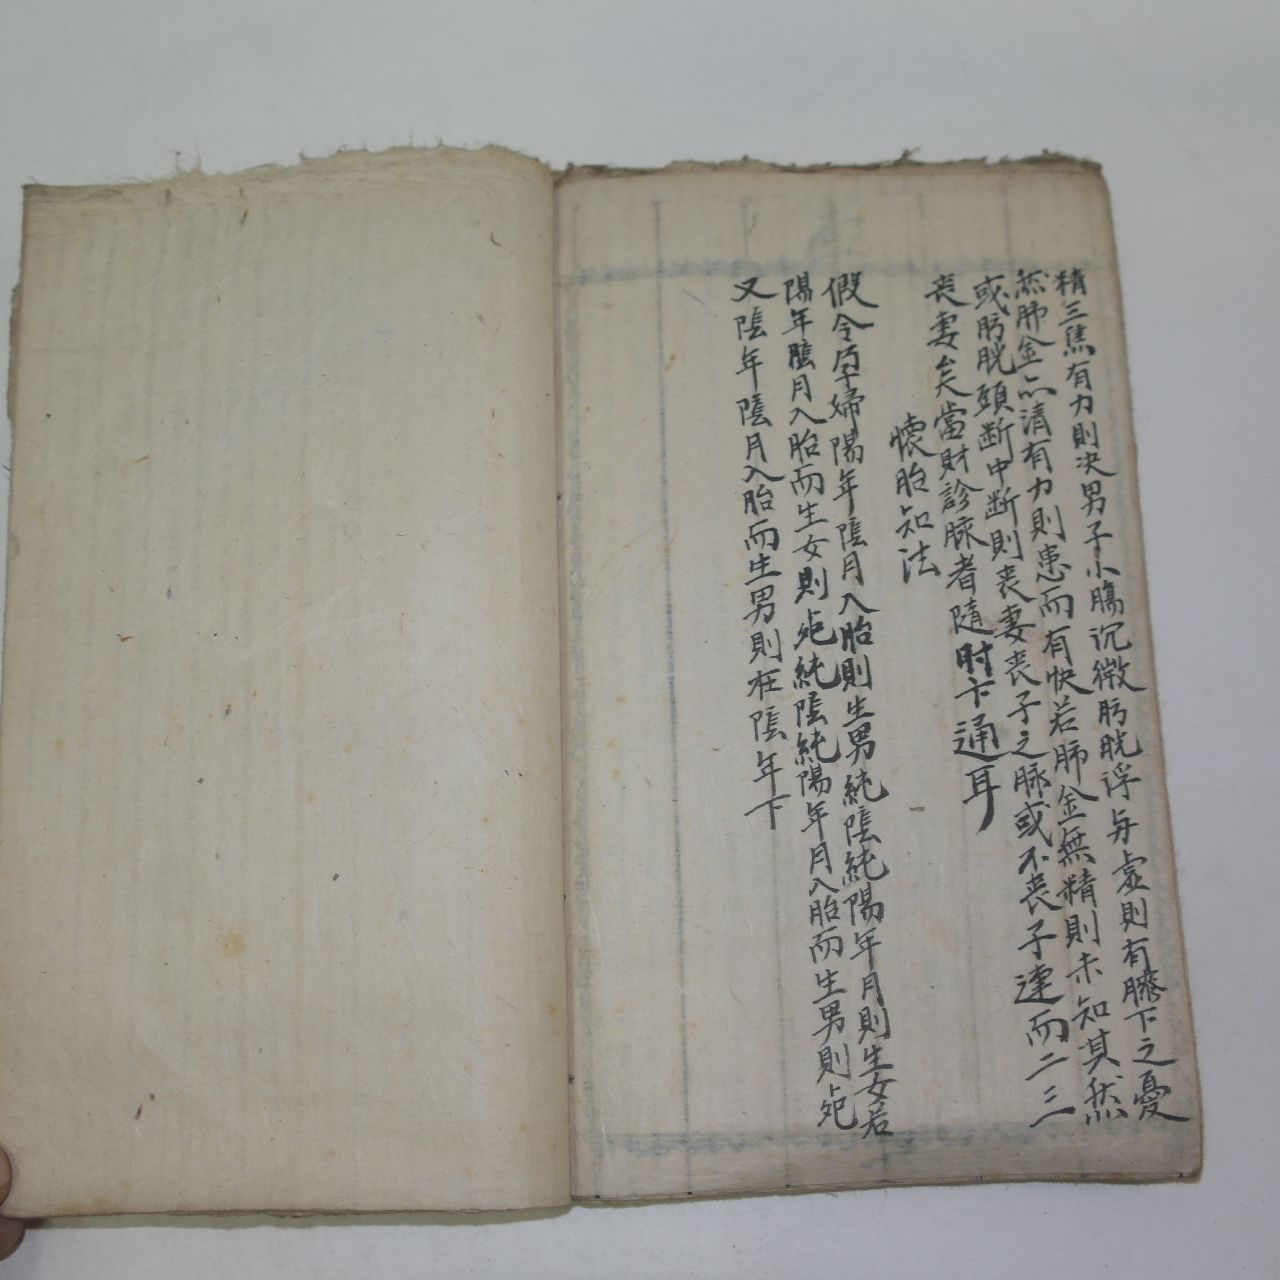 精三焦有力則决男子小膓沉微肪胱浮每虛則有臍下之憂
然肺金亦清有力則患而有快若肺金無精則未知其然
或肪胱頭断中断則丧妻丧子之脉或不丧子達而二三
丧妻矣當財診脉者隨時下通耳
懐胎知法
假令孕婦陽年陰月入胎則生男純陰純陽年月則生女若
陽年陰月入胎而生女則死純陰純陽年月入胎而生男則死
又陰年陰月入胎而生男則在陰年下